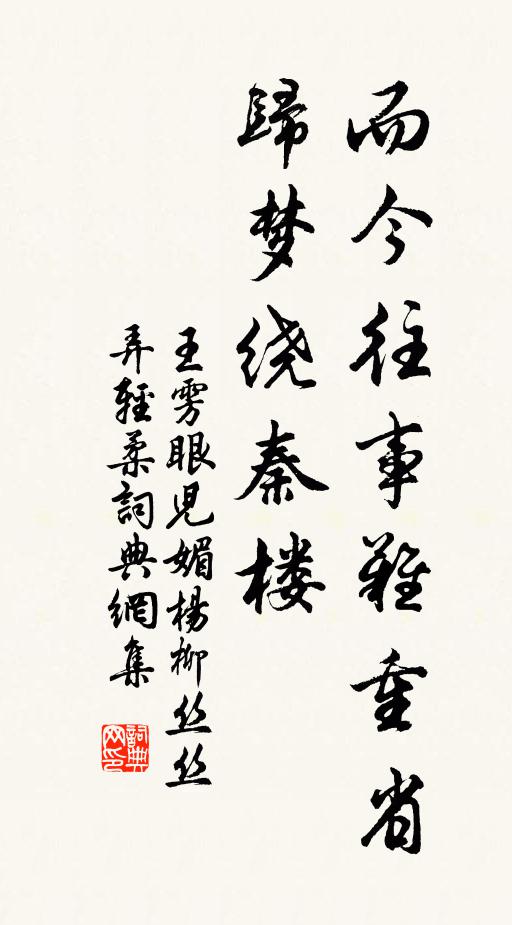 而今往事難重省
歸梦绕秦楼
王雱眼児媚楊柳丝丝
弄輕柔詞典網集
詞典网印